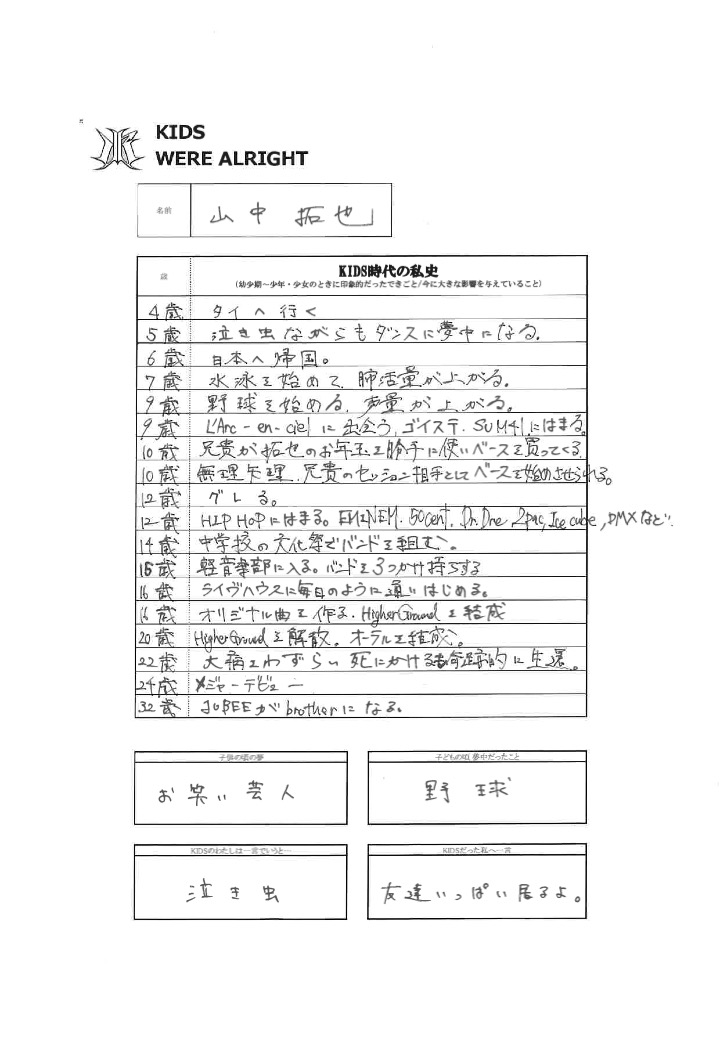 KIDS
WERE ALRIGHT
名前 山中 拓也
歳 KIDS時代の私史
(幼少期～少年・少女のときに印象的だったできごと/今に大きな影響を与えていること)
4歳 タイへ行く
5歳 泣き虫ながらもダンスに夢中になる。
6歳 日本へ帰国。
7歳 水泳を始めて、肺活量が上がる。
9歳 野球を始める、声量が上がる。
9歳 L'Arc-en-cielに出会う、ゴイステ、SUM41にはまる。
10歳 兄貴が拓也のお年玉を勝手に使いベースを買ってくる
10歳 無理矢理、兄貴のセッション相手としてベースを始めさせられる。
12歳 グレる。
12歳 HIP HOPにはまる。EMINEM. 50cent. Dr.Dre 2pac, Ice cube, DMXなど..
14歳 中学校の文化祭でバンドを組む。
15歳 軽音楽部に入る。バンドを3つかけ持ちする
16歳 ライヴハウスに毎日のように通いはじめる。
16歳 オリジナル曲を作る、HigherGroundを結成
20歳 HigherGroundを解散。オーラルを結成。
22歳 大病をわずらい死にかける奇跡的に生還。
24歳 メジャーデビュー
32歳 JUBEEがbrotherになる。
子供の頃の夢
お笑い芸人
子どもの頃 夢中だったこと
野球
KIDSのわたしは一言でいうと…
泣き虫
KIDSだった私へ一言
友達いっぱい居るよ。